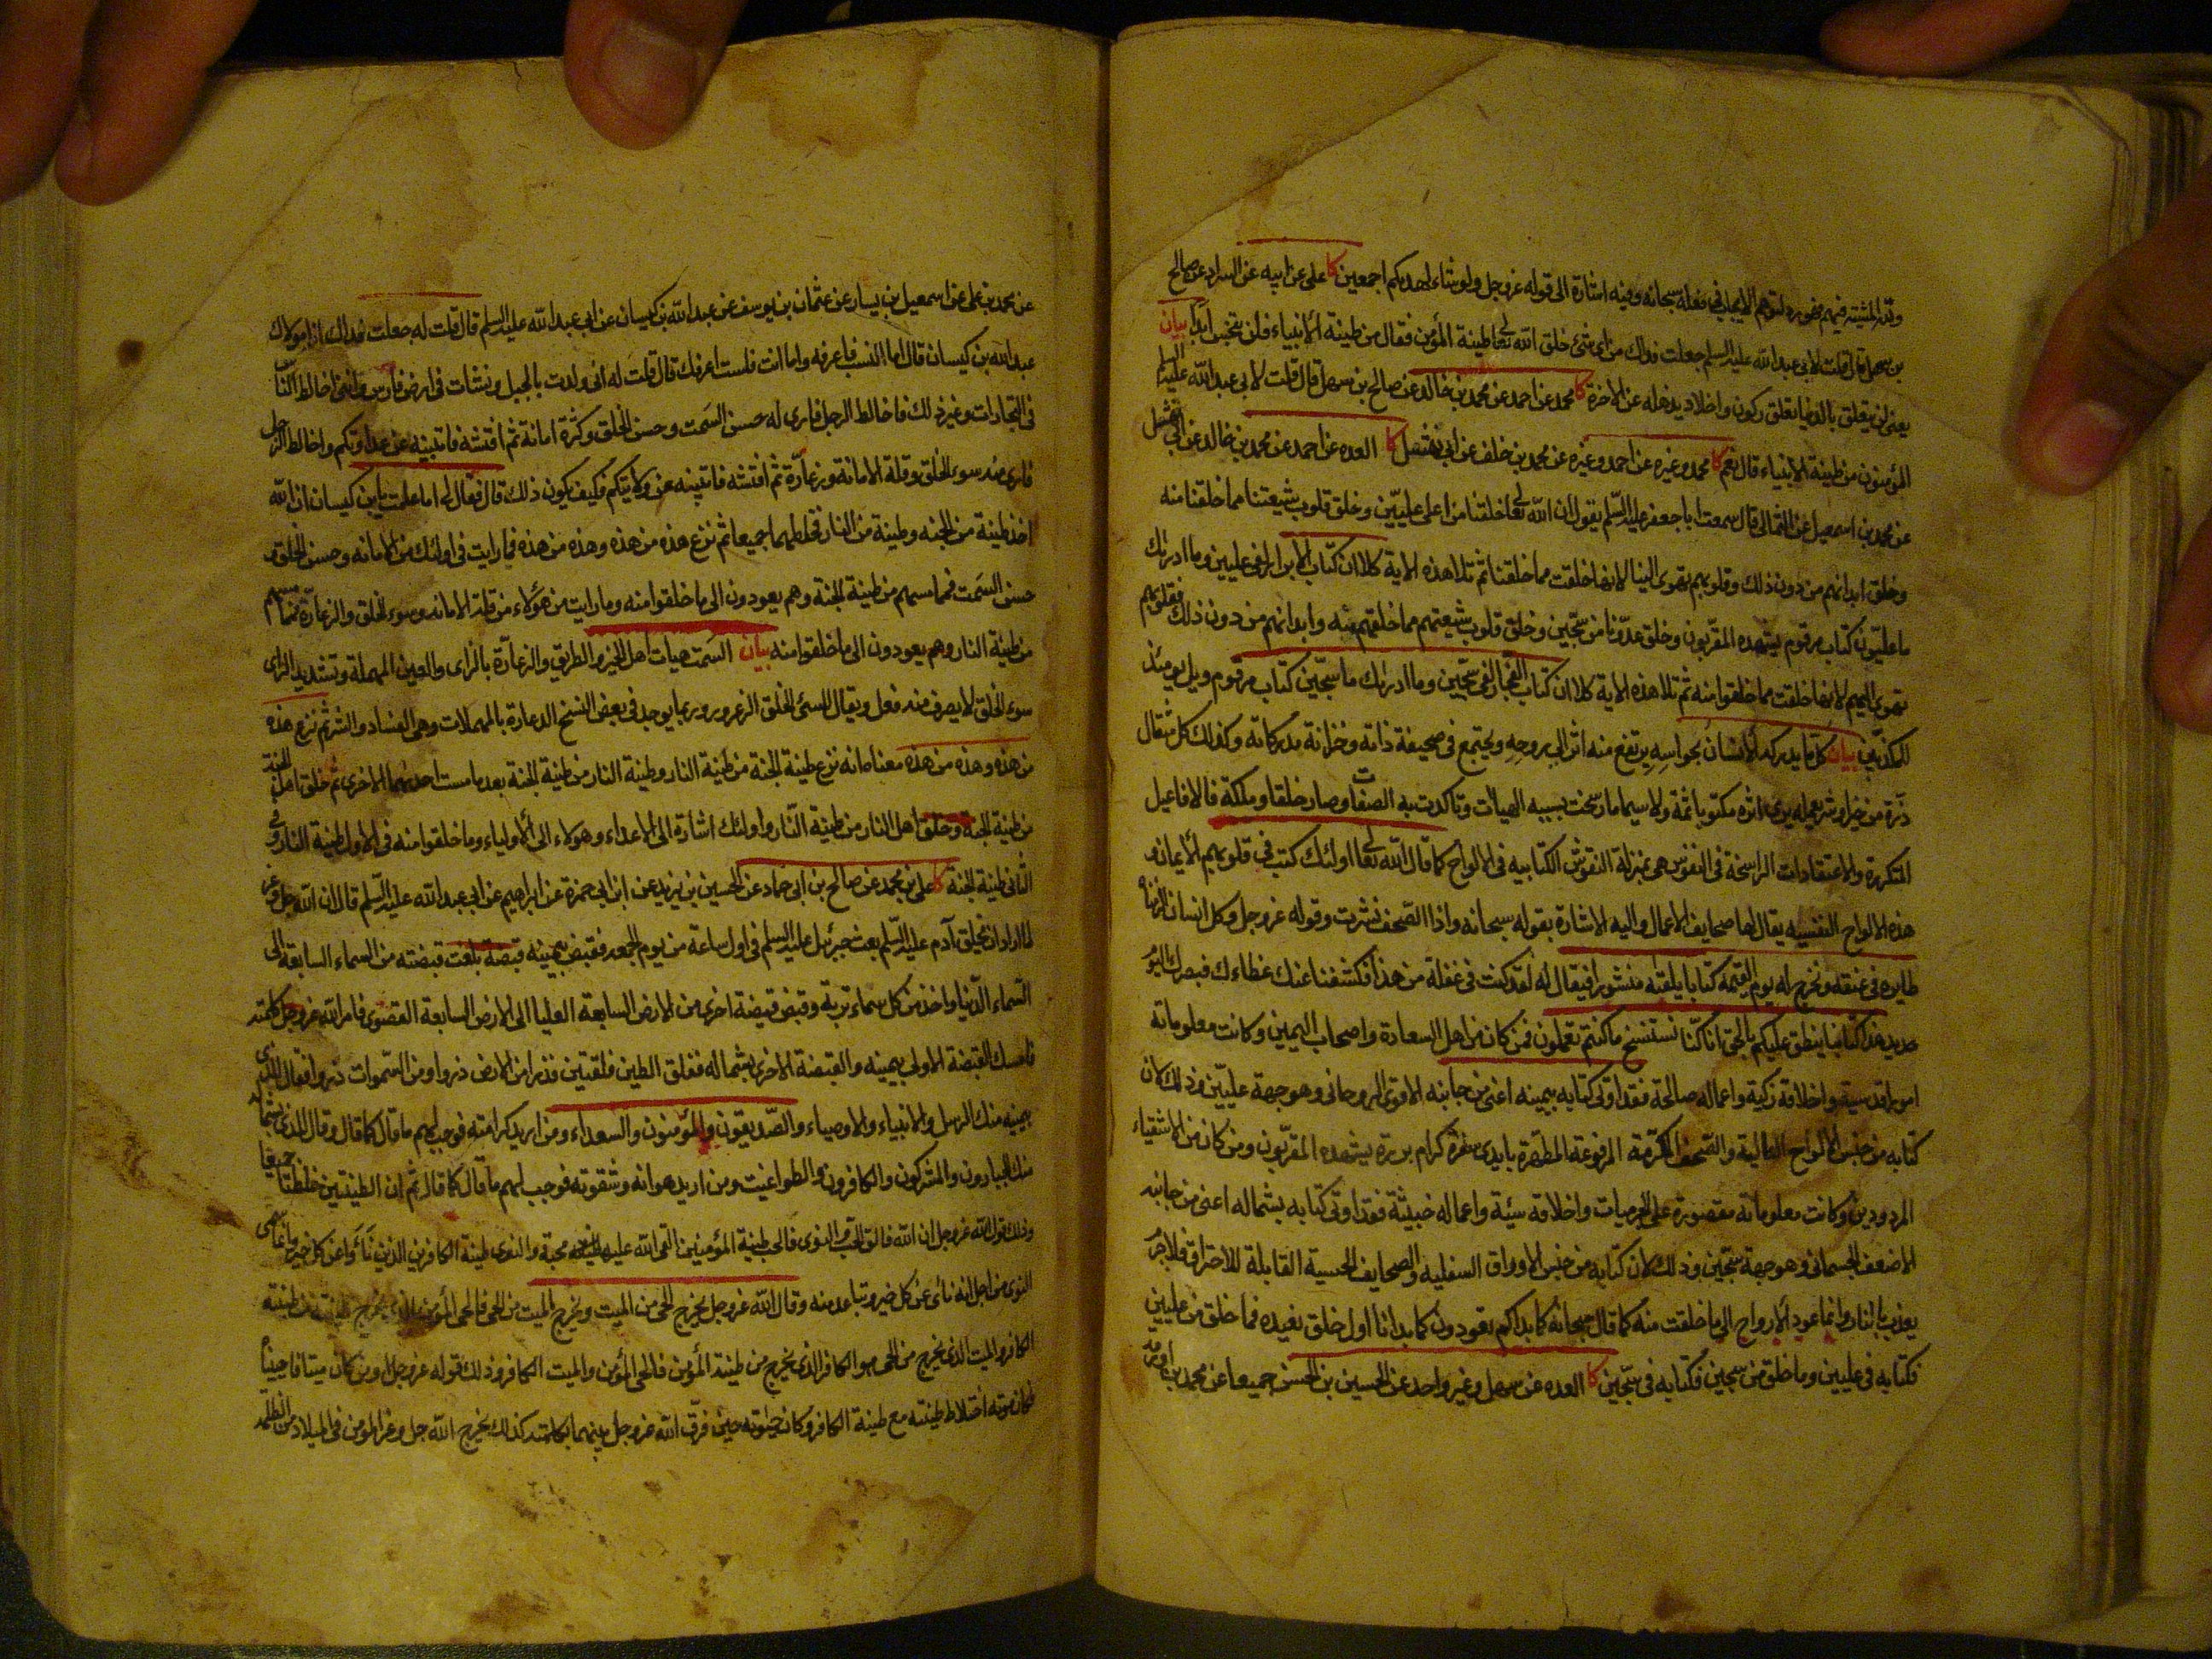 وقيد المشيته فيهم ضرورة لتوهم الايجاب في فعله سبحانه وفيه اشارة الى قوله عز وجل ولو شاء لهديكم اجمعين كا على عن ابيه عن السراد عن صالح
بن سهل قال قلت لابي عبد الله عليه السلم جعلت فداك من اى شئ خلق الله تعالى طينة المؤمن فقال من طينة الانبياء فلن تخبث ابدا بيان
يعنى لن يتعلق بالدنيا تعلق ركون واخلاد يذهله عن الاخرة كا محمد عن احمد عن محمد بن خالد عن صالح بن سهل قال قلت لابي عبد الله عليه السلم
المؤمنون من طينة الانبياء قال نعم كا محمد وغيره عن احمد وغيره عن محمد بن خلف عن ابي نهشل كا العدة عن احمد عن محمد بن خالد عن ابي نهشل
عن محمد بن اسمعيل عن الثمالى قال سمعت ابا جعفر عليه السلم يقول ان الله تعالى خلقنا من اعلى عليين وخلق قلوب شيعتنا مما خلقنا منه
وخلق ابدانهم من دون ذلك وقلوبهم تهوى الينا لانها خلقت مما خلقنا ثم تلا هذه الاية كلا ان كتاب الابرار لفى عليين وما ادريك
ما عليون كتاب مرقوم يشهده المقربون وخلق عدونا من سجين وخلق قلوب شيعتهم مما خلقهم منه وابدانهم من دون ذلك فقلوبهم
تهوى اليهم لانها خلقت مما خلقوا منه ثم تلا هذه الاية كلا ان كتاب الفجار لفى سجين وما ادريك ما سجين كتاب مرقوم ويل يومئذ
للمكذبين بيان كل ما يدركه الانسان بحواسه يرتفع منه اثر الى روحه ويجتمع في صحيفة ذاته وخزانة مدركاته وكذلك كل مثقال
ذرة من خير او شر يعمله يرى اثره مكتوبا ثمة ولا سيما ما رسخت بسببه الهيات وتاكدت به الصفات وصار خلقا وملكة فالافاعيل
المتكررة والاعتقادات الراسخة في النفوس هى بمنزلة النقوش الكتابيه في الالواح كما قال الله تعالى اولئك كتب في قلوبهم الايمان
هذه الالواح النفسيه يقال لها صحايف الاعمال واليه الاشارة بقوله سبحانه واذا الصحف نشرت وقوله عز وجل وكل انسان الزمناه
طايره في عنقه ونخرج له يوم القيمة كتابا يلقيه منشورا فيقال له لقد كنت في غفلة من هذا فكشفنا عنك غطاءك فبصرك اليوم
حديد هذا كتابنا ينطق عليكم بالحق انا كنا نستنسخ ما كنتم تعملون فمن كان من اهل السعادة واصحاب اليمين وكانت معلوماته
امورا قدسية واخلاقه زكية واعماله صالحة فقد اوتى كتابه بيمينه اعنى من جانبه الاقوى الروحانى وهو جهة عليين وذلك لان
كتابه من جنس الالواح العالية والصحف المكرمة المرفوعة المطهرة بايدى سفرة كرام بررة يشهده المقربون ومن كان من الاشقياء
المردودين وكانت معلوماته مقصورة على الجرميات واخلاقه سيئة واعماله خبيثة فقد اوتى كتابه بشماله اعنى من جانبه
الاضعف الجسمانى وهو جهة سجين وذلك لان كتابه من جنس الاوراق السفلية والصحايف الحسية القابلة للاحتراق فلاجرم
يعذب بالنار وانما عود الارواح الى ما خلقت منه كما قال سبحانه كما بداكم تعودون كما بدانا اول خلق نعيده فما خلق من عليين
فكتابه في عليين وما خلق من سجين فكتابه في سجين كا العدة عن سهل وغير واحد عن الحسين بن الحسن جميعا عن محمد بن اورمه
عن محمد بن على عن اسمعيل بن يسار عن عثمان بن يوسف عن عبد الله بن كيسان عن ابي عبد الله عليه السلم قال قلت له جعلت فداك انا مولاك
عبد الله بن كيسان قال اما النسب فاعرفه واما انت فلست اعرفك قال قلت له انى ولدت بالجبل ونشات في ارض فارس واننى اخالط الناس
في التجارات وغير ذلك فاخالط الرجل فارى له حسن السمت وحسن الخلق وكثرة امانة ثم افتشه فاتبينه عن عداوتكم واخالط الرجل
فارى منه سوء الخلق وقلة الامانة وزعارة ثم افتشه فاتبينه عن ولايتكم فكيف يكون ذلك قال فقال لى اما علمت يا بن كيسان ان الله
اخذ طينة من الجنه وطينة من النار فخلطهما جميعا ثم نزع هذه من هذه وهذه من هذه فما رايت في اولئك من الامانه وحسن الخلق و
حسن السمت فمما مسهم من طينة الجنة وهم يعودون الى ما خلقوا منه وما رايت من هؤلاء من قلة الامانه وسوء الخلق والزعارة فمما مستهم
من طينة النار وهم يعودون الى ما خلقوا منه بيان السمت هيات اهل الخير والطريق والزعارة بالزاى والعين المهملة وتشديد الراى
سوء الخلق لا يصرف منه فعل ويقال للسئ الخلق الزعرور وربما يوجد في بعض النسخ الدعارة بالمهملات وهى الفساد والشر ثم نزع هذه
من هذه وهذه من هذه معناه انه نزع طينة الجنة من طينة النار وطينة النار من طينة الجنة بعد ما مست احديهما الاخرى ثم خلق اهل الجنة
من طينة الجنة وخلق اهل النار من طينة النار واولئك اشارة الى الاعداء وهولاء الى الاولياء وما خلقوا منه في الاول طينة النار وفي
الثانى طينة الجنة كا على بن محمد عن صالح بن ابي حماد عن الحسين بن يزيد عن ابن ابي حمزة عن ابراهيم عن ابي عبد الله عليه السلم قال ان الله جل وعز
لما اراد ان يخلق آدم عليه السلم بعث جبرئيل عليه السلم في اول ساعة من يوم الجمعه فقبض بيمينه قبضة بلغت قبضته من السماء السابعة الى
السماء الدنيا واخذ من كل سماء تربة وقبض قبضة اخرى من الارض السابعة العليا الى الارض السابعة القصوى فامر الله عز وجل كلمته
فامسك القبضة الاولى بيمينه والقبضة الاخرى بشماله ففلق الطين فلقتين فذرا من الارض ذروا ومن السموات ذروا فقال للذى
بيمينه منك الرسل والانبياء والاوصياء والصديقون والمؤمنون والسعداء ومن اريد كرامته فوجب لهم ما قال كما قال وقال للذى بشماله
منك الجبارون والمشركون والكافرون والطواغيت ومن اريد هوانه وشقوته فوجب لهم ما قال كما قال ثم ان الطينتين خلطتا جميعا
وذلك قول الله عز وجل ان الله فالق الحب والنوى فالحب طينة المؤمنين التى القى الله عليها محبته والنوى طينة الكافرين الذين نأوا عن كل خير وانما سمى
النوى من اجل انه نائ عن كل خير وتباعد منه وقال الله عز وجل يخرج الحى من الميت ويخرج الميت من الحى فالحى المؤمن الذى يخرج طينته من طينة
الكافر والميت الذى يخرج من الحى هو الكافر الذى يخرج من طينة المؤمن فالحى المؤمن والميت الكافر وذلك قوله عز وجل او من كان ميتا فاحييناه
فكان موته اختلاط طينته مع طينة الكافر وكان حيوته حين فرق الله عز وجل بينهما بكلمته كذلك يخرج الله جل وعز المؤمن في الميلاد من الظلمة